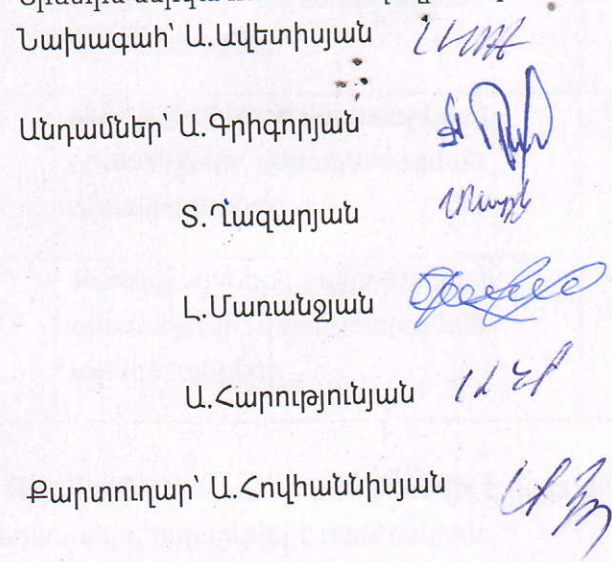 Նախագահ՝ Ա.Ավետիսյան
Անդամներ՝ Ա.Գրիգորյան
Տ.Ղազարյան
Լ.Մառանջյան
Ա.Հարությունյան
Քարտուղար՝ Ա.Հովհաննիսյան